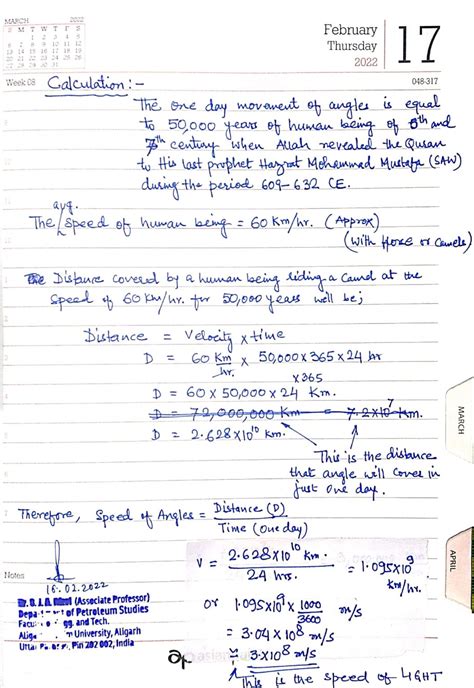 MARCH 2022
S M T W T F S
1 2 3 4 5
6 7 8 9 10 11 12
13 14 15 16 17 18 19
20 21 22 23 24 25 26
27 28 29 30 31
February
Thursday
2022
17
Week 08
048-317
Calculation :-
The one day movement of angles is equal
to 50,000 years of human being of 6th and
7th century when Allah revealed the Quran
to His last prophet Hazrat Mohammad Mustafa (SAW)
during the period 609-632 CE.
avg.
The speed of human being = 60 Km/hr. (Approx)
(with Horse or Camels)
The Distance covered by a human being riding a Camel at the
speed of 60 Km/hr. for 50,000 years will be;
Distance = Velocity x time
D = 60 Km/hr. x 50,000 x 365 x 24 hr
x365
D = 60 x 50,000 x 24 Km.
D = 72,000,000 Km = 7.2x10^7 Km.
D = 2.628x10^10 Km.
This is the distance
that angle will cover in
just one day.
Therefore, Speed of Angles = Distance (D) / Time (One day)
V = 2.628x10^10 Km. / 24 hrs. = 1.095x10^9 Km/hr.
or 1.095x10^9 x 1000/3600 m/s
= 3.04x10^8 m/s
≅ 3x10^8 m/s
This is the speed of LIGHT
MARCH
APRIL
Notes
16.02.2022
(Associate Professor)
of Petroleum Studies
and Tech.
University, Aligarh
Pin 202 002, India